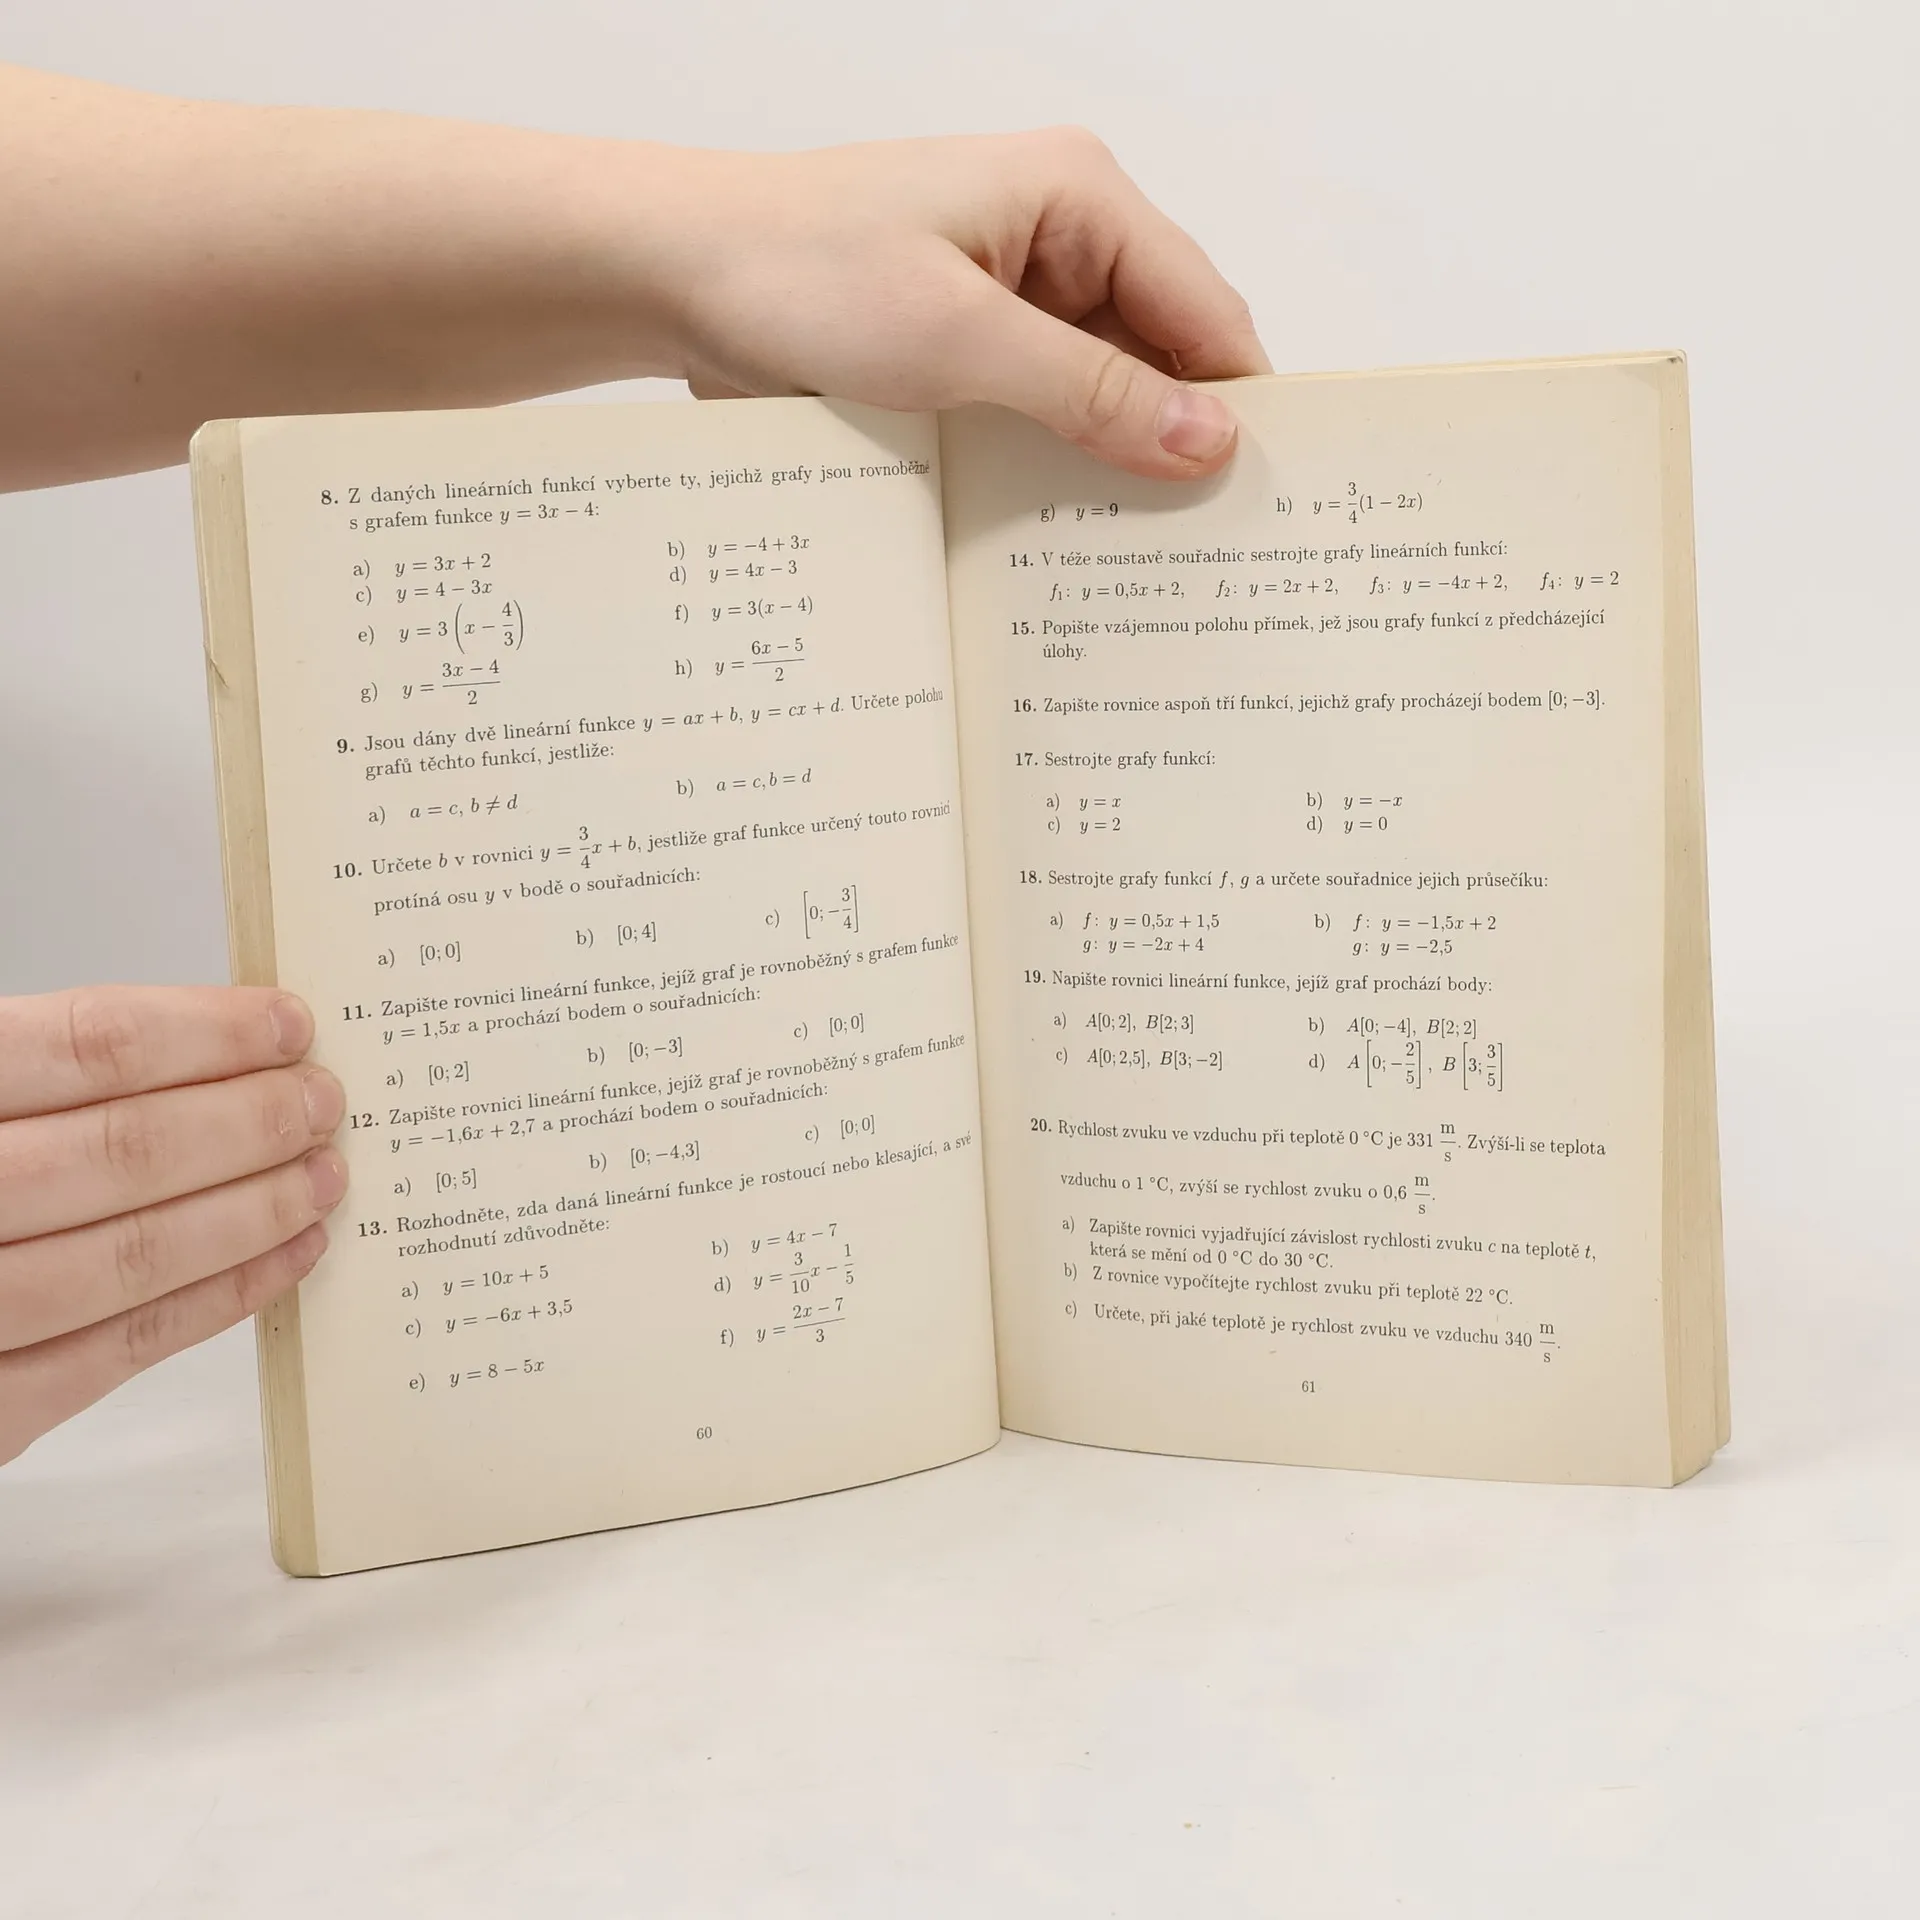 8. Z daných lineárních funkcí vyberte ty, jejichž grafy jsou rovnoběžné
s grafem funkce y = 3x − 4:
a) y = 3x + 2 b) y = −4 + 3x
c) y = 4 − 3x d) y = 4x − 3
e) y = 3 (x − 4/3) f) y = 3(x − 4)
g) y = (3x − 4)/2 h) y = (6x − 5)/2
9. Jsou dány dvě lineární funkce y = ax + b, y = cx + d. Určete polohu
grafů těchto funkcí, jestliže:
a) a = c, b ≠ d b) a = c, b = d
10. Určete b v rovnici y = 3/4 x + b, jestliže graf funkce určený touto rovnicí
protíná osu y v bodě o souřadnicích:
a) [0; 0] b) [0; 4] c) [0; −3/4]
11. Zapište rovnici lineární funkce, jejíž graf je rovnoběžný s grafem funkce
y = 1,5x a prochází bodem o souřadnicích:
a) [0; 2] b) [0; −3] c) [0; 0]
12. Zapište rovnici lineární funkce, jejíž graf je rovnoběžný s grafem funkce
y = −1,6x + 2,7 a prochází bodem o souřadnicích:
a) [0; 5] b) [0; −4,3] c) [0; 0]
13. Rozhodněte, zda daná lineární funkce je rostoucí nebo klesající, a své
rozhodnutí zdůvodněte:
a) y = 10x + 5 b) y = 4x − 7
c) y = −6x + 3,5 d) y = 3/10 x − 1/5
e) y = 8 − 5x f) y = (2x − 7)/3
60
g) y = 9 h) y = 3/4 (1 − 2x)
14. V téže soustavě souřadnic sestrojte grafy lineárních funkcí:
f₁: y = 0,5x + 2, f₂: y = 2x + 2, f₃: y = −4x + 2, f₄: y = 2
15. Popište vzájemnou polohu přímek, jež jsou grafy funkcí z předcházející
úlohy.
16. Zapište rovnice aspoň tří funkcí, jejichž grafy procházejí bodem [0; −3].
17. Sestrojte grafy funkcí:
a) y = x b) y = −x
c) y = 2 d) y = 0
18. Sestrojte grafy funkcí f, g a určete souřadnice jejich průsečíku:
a) f: y = 0,5x + 1,5 b) f: y = −1,5x + 2
g: y = −2x + 4 g: y = −2,5
19. Napište rovnici lineární funkce, jejíž graf prochází body:
a) A[0; 2], B[2; 3] b) A[0; −4], B[2; 2]
c) A[0; 2,5], B[3; −2] d) A [0; −2/5], B [3; 3/5]
20. Rychlost zvuku ve vzduchu při teplotě 0 °C je 331 m/s. Zvýší-li se teplota
vzduchu o 1 °C, zvýší se rychlost zvuku o 0,6 m/s.
a) Zapište rovnici vyjadřující závislost rychlosti zvuku c na teplotě t,
která se mění od 0 °C do 30 °C.
b) Z rovnice vypočítejte rychlost zvuku při teplotě 22 °C.
c) Určete, při jaké teplotě je rychlost zvuku ve vzduchu 340 m/s.
61